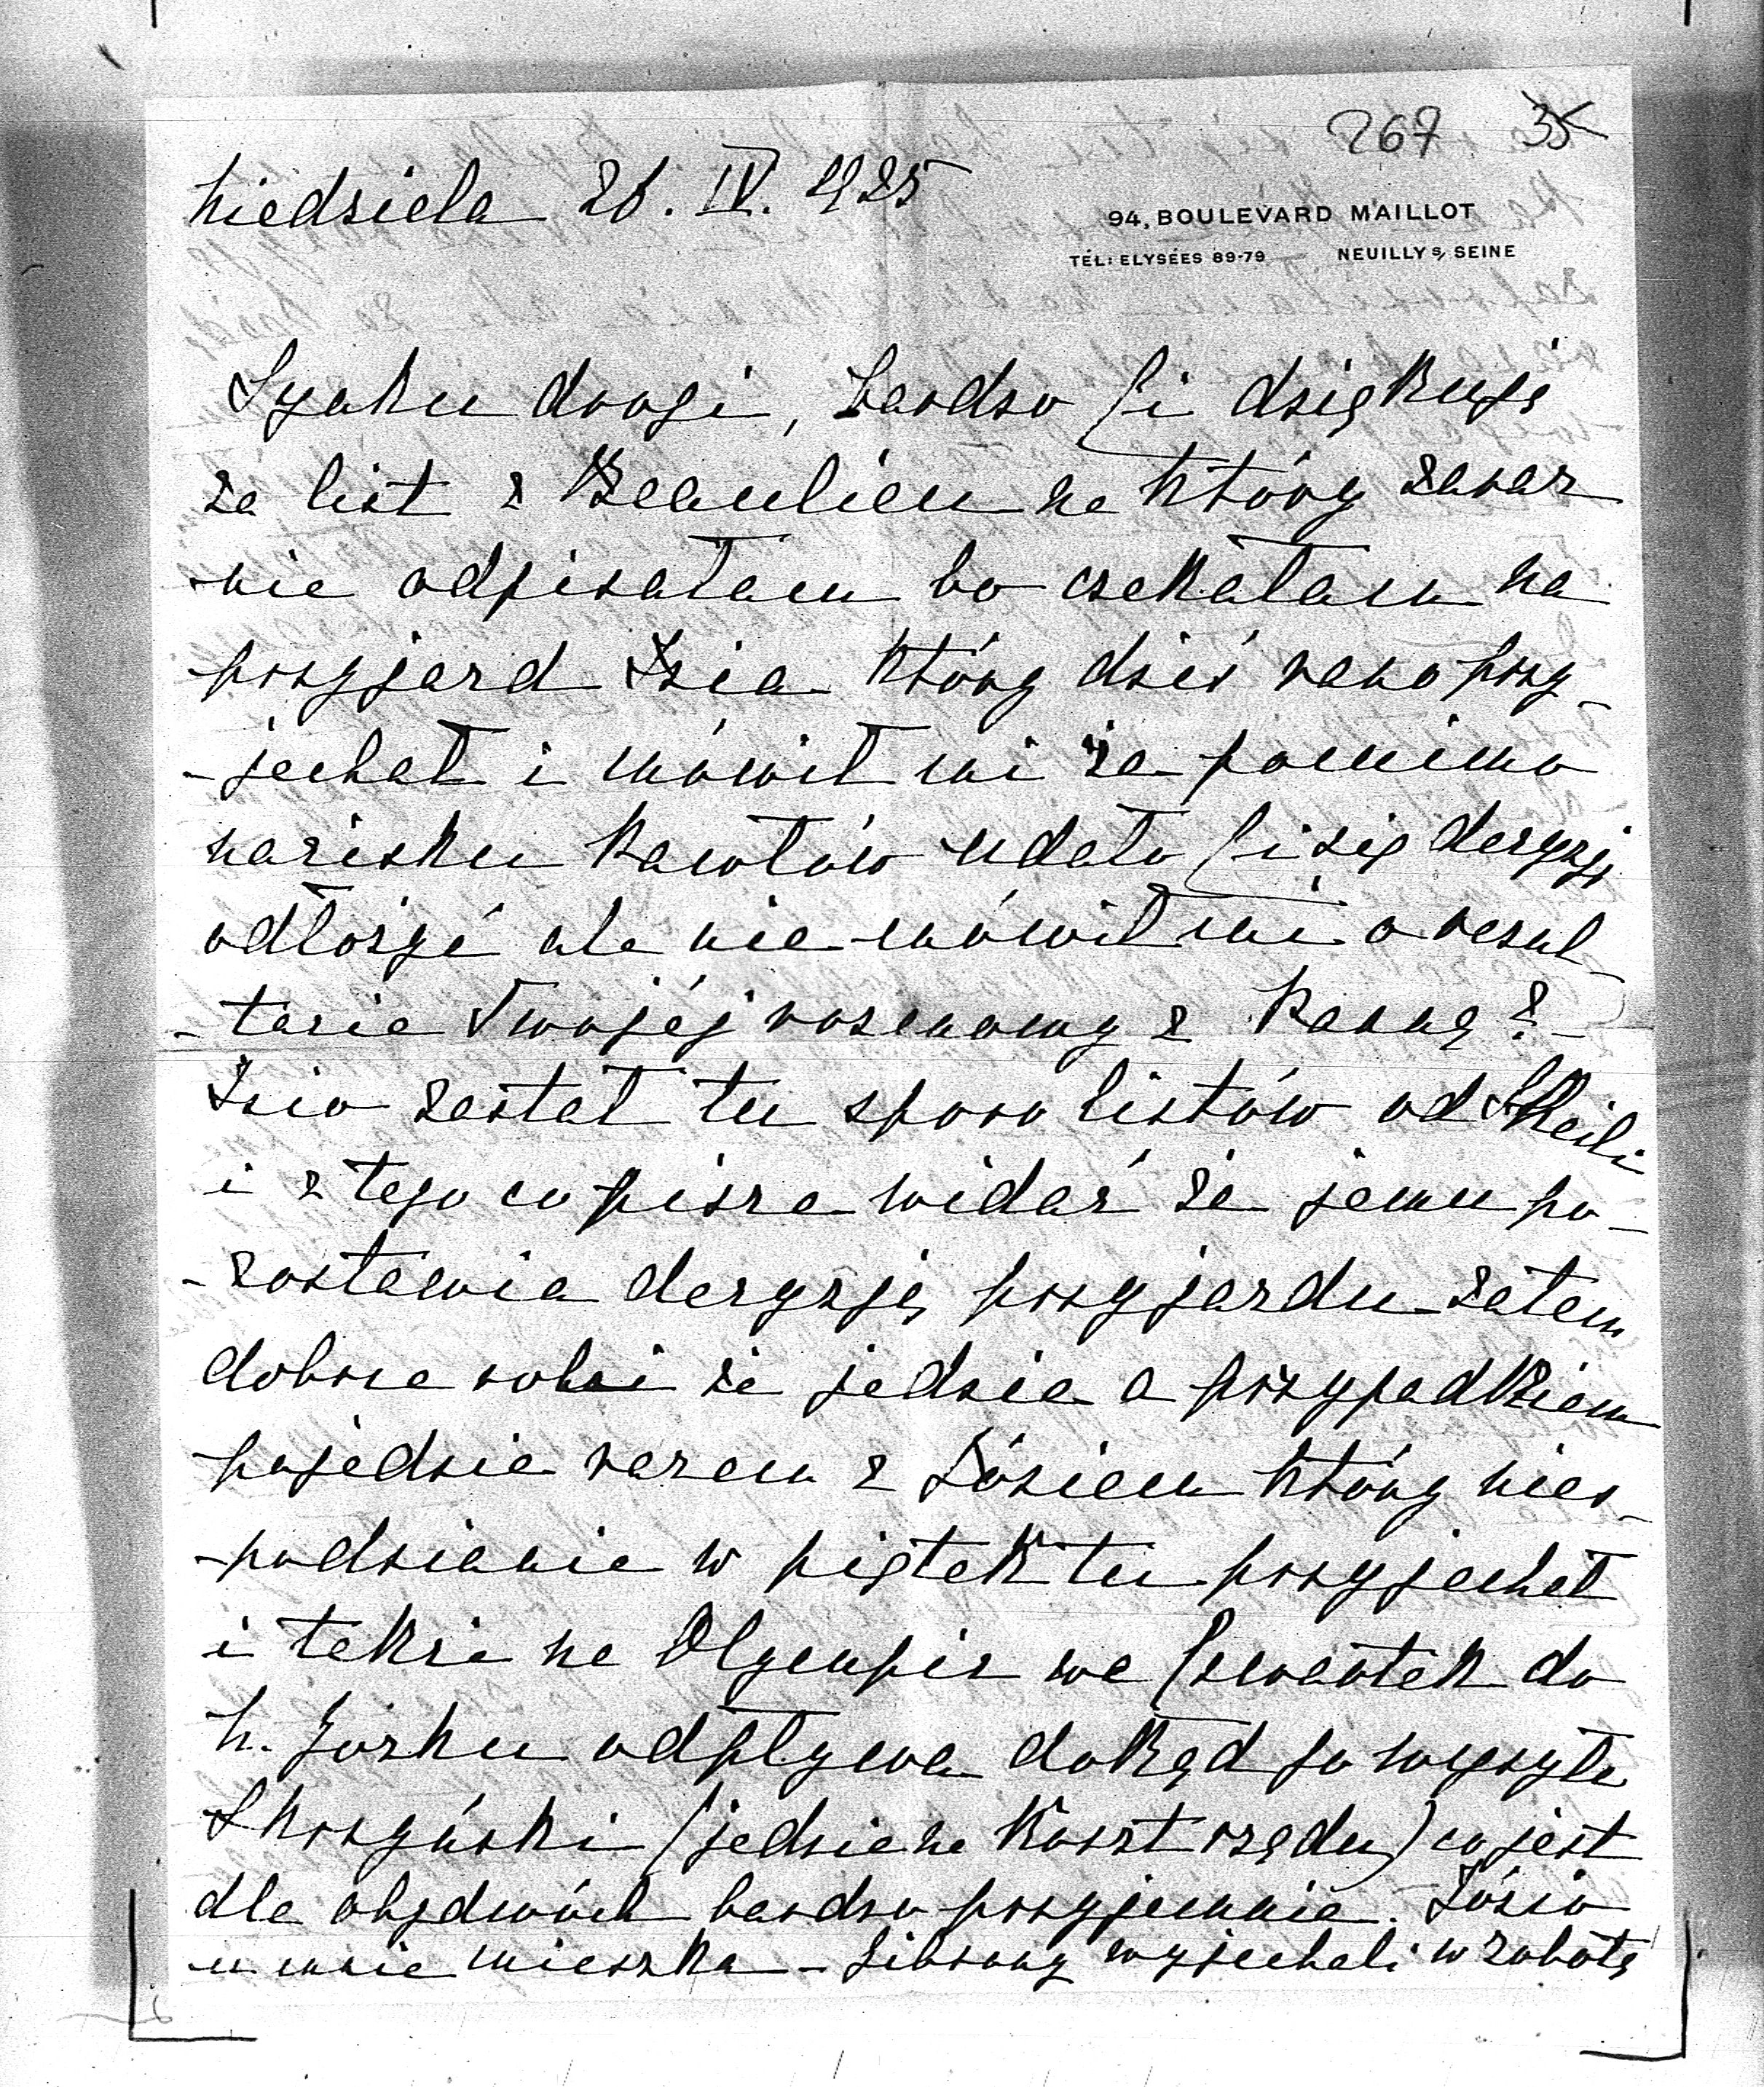 267 35
niedziela 26. IV. 1925
94, BOULEVARD MAILLOT
TÉL: ELYSÉES 89-79 NEUILLY S/ SEINE
Synku drogi, bardzo Ci dziękuję
za list z Beaulieu na który zaraz
nie odpisałam bo czekałam na
przyjazd Izia który dziś rano przy-
-jechał i mówił mi że pomimo
nacisku Kawłów udało Ci się decyzję
odłożyć ale nie mówił mi o rezul-
-tacie Twojéj rozmowy z Panną?
Izio zastał tu sporo listów od Sheili
i z tego co pisze widać że jemu po-
-zostawia decyzję przyjazdu zatem
dobrze robi że jedzie a przypadkiem
pojedzie razem z Józiem który nies-
-podzianie w piątek tu przyjechał
i także na Olympic we Czwartek do
N. Jorku odpływa dokąd go wysyła
Skrzyński (jedzie na koszt rządu) co jest
dla obydwóch bardzo przyjemnie. Józio
u mnie mieszka - wyjechali w sobotę